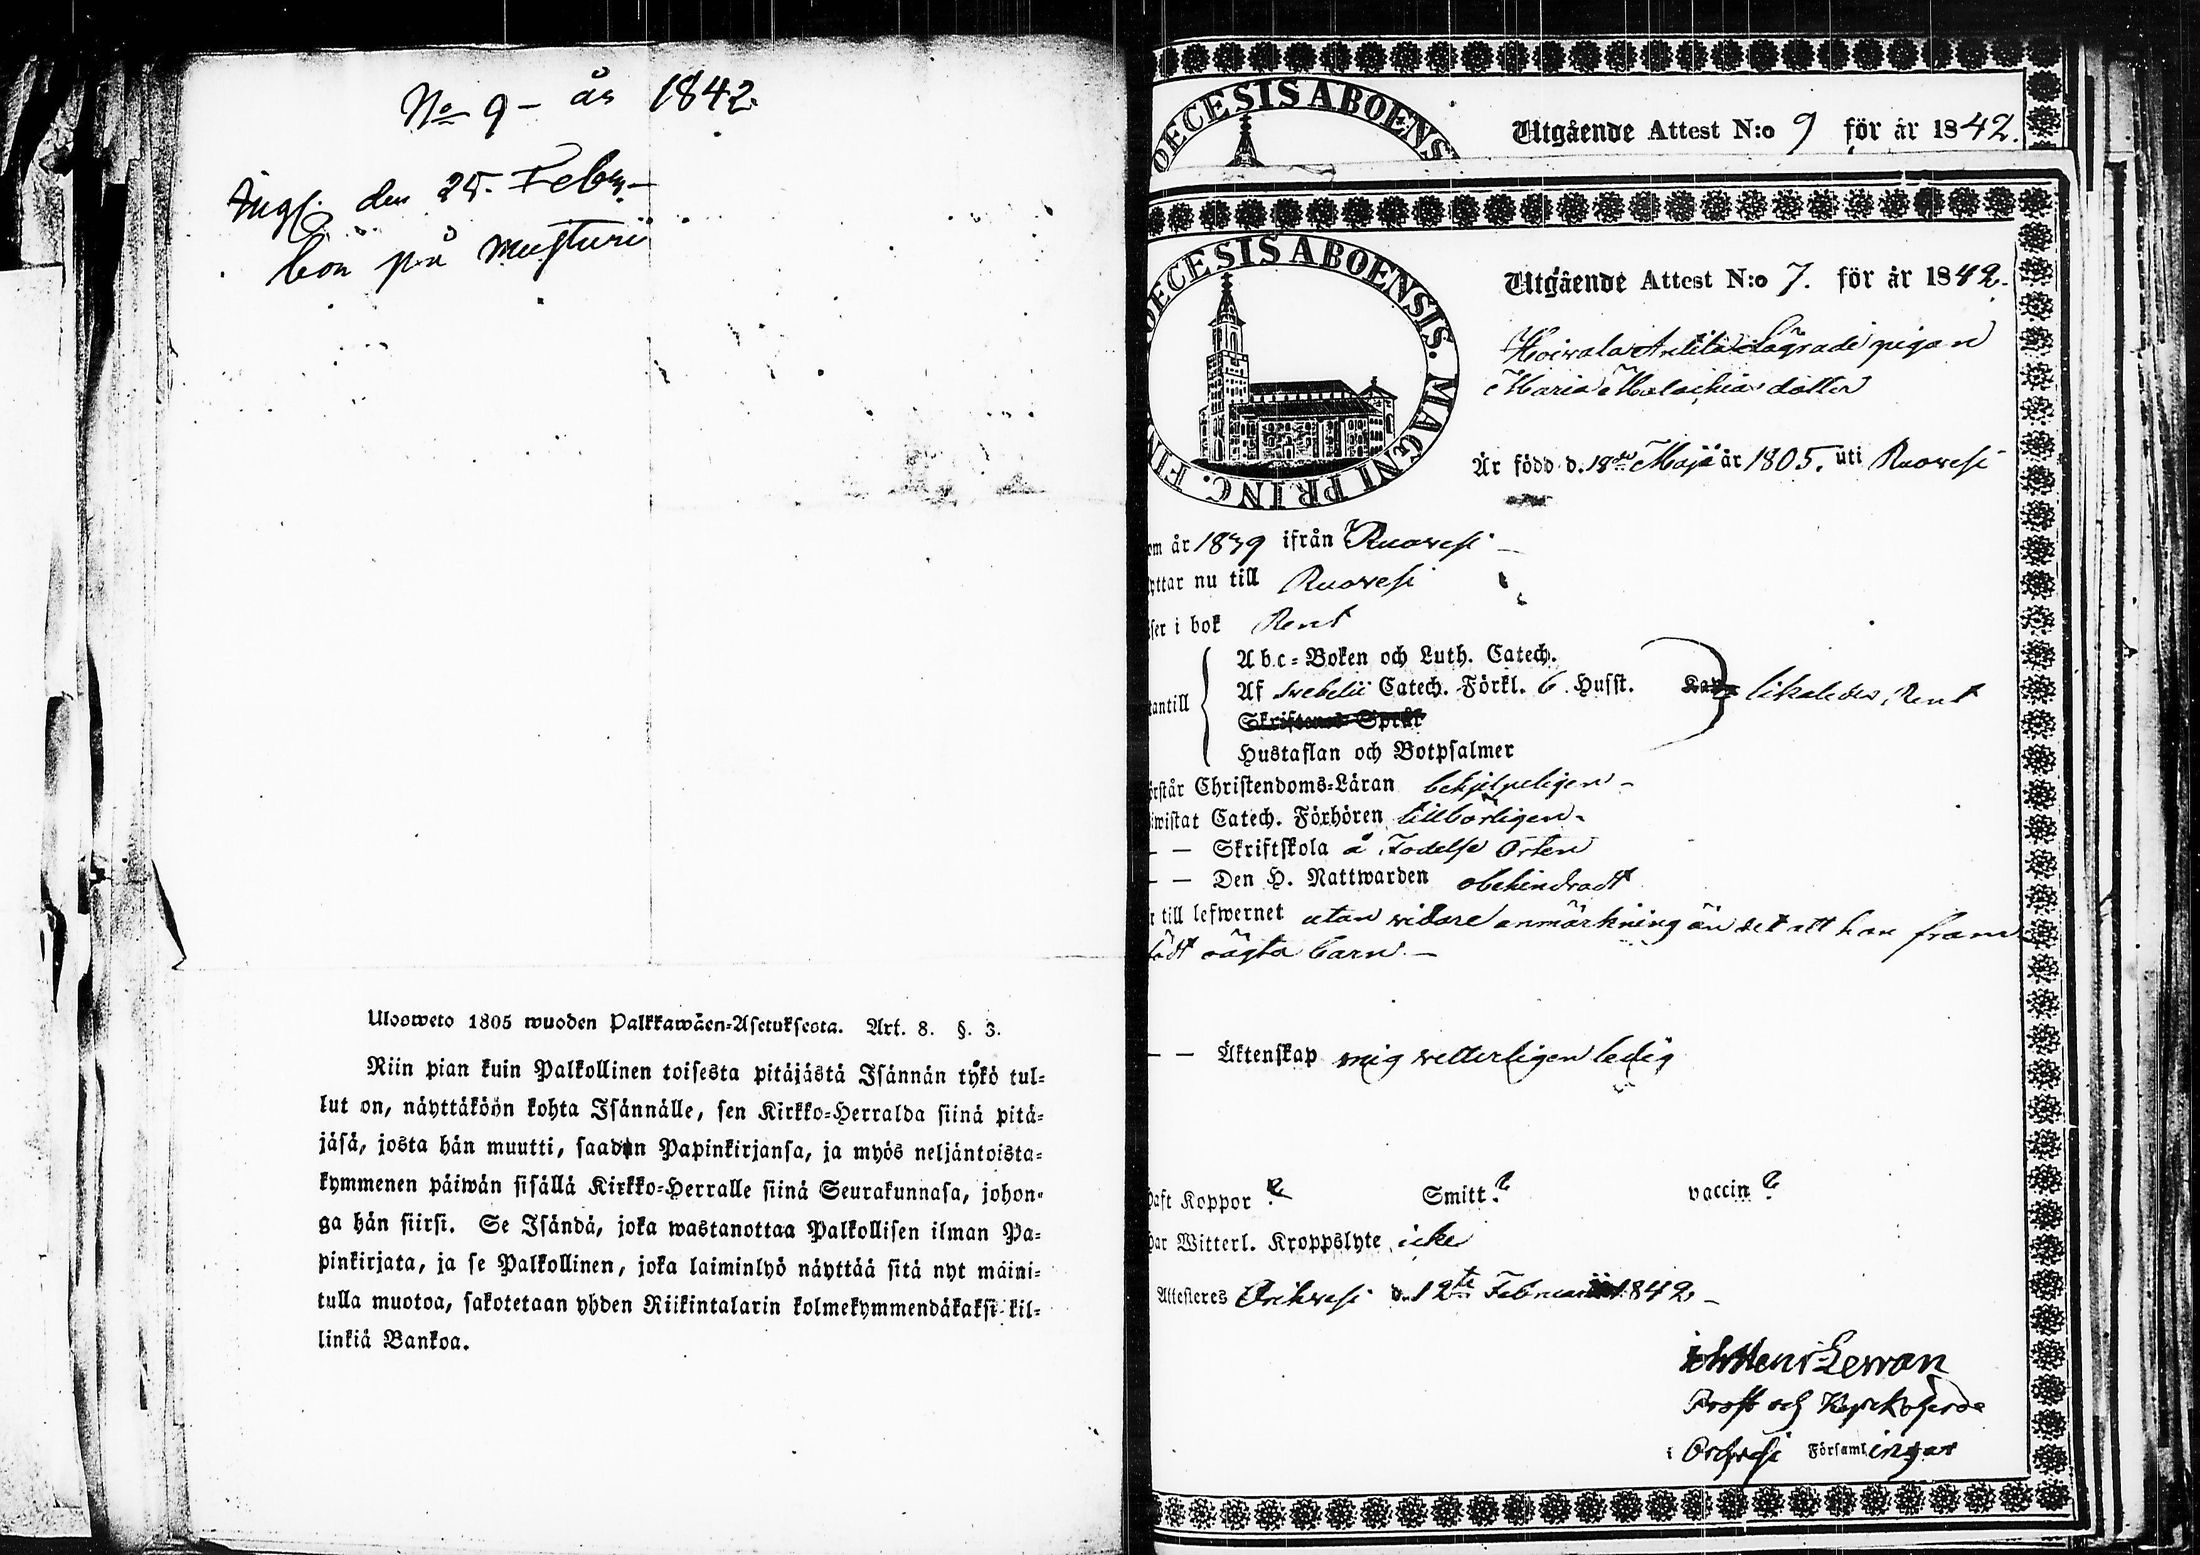 No 9 – år 1842.
Ingl. den 25. Febr.
bor på Musturi
Ulosweto 1805 wuoden Palkkawäen-Asetuksesta. Art. 8. §. 3.
Niin pian kuin Palkollinen toisesta pitäjästä Isännän tykö tul-
lut on, näyttäköön kohta Isännälle, sen Kirkko-Herralda siinä pitä-
jäsä, josta hän muutti, saadun Papinkirjansa, ja myös neljäntoista-
kymmenen päiwän sisällä Kirkko-Herralle siinä Seurakunnasa, johon-
ga hän siirsi. Se Isändä, joka wastanottaa Palkollisen ilman Pa-
pinkirjata, ja se Palkollinen, joka laiminlyö näyttää sitä nyt maini-
tulla muotoa, sakotetaan yhden Riikintalarin kolmekymmendäkaksi kil-
linkiä Bankoa.
OECESIS ABOENS
Utgående Attest N:o 9 för år 1842.
OECESIS ABOENSIS. MAGNI PRINC. FIN
Utgående Attest N:o 7. för år 1842.
pigan
Maria Malachias dotter
Är född d. 18de Maji år 1805. uti Ruowesi
om år 1839 ifrån Ruowesi –
yttar nu till Ruowesi
ser i bok Rent
antill
Abc-Boken och Luth. Catech.
Af Swebelii Catech. Förkl. 6 Husst. likaledes Rent
Skriftenes Språk
Hustaflan och Botpsalmer
örstår Christendoms-Läran behjelpeligen –
iwistat Catech. Förhören tillbörligen –
– – Skriftskola å Födelse Orten
– – Den H. Nattwarden obehindradt
r till lefwernet utan widare anmärkning än det att hon fram
födt oägta barn –
– – Äktenskap mig wetterligen ledig
haft Koppor ? Smitt. ? vaccin ?
har Witterl. Kroppslyte icke
Attesteres Orihwesi d. 12te Februarii 1842 –
Lewan
Prost och Kyrkoherde
i Orihwesi Församlingar